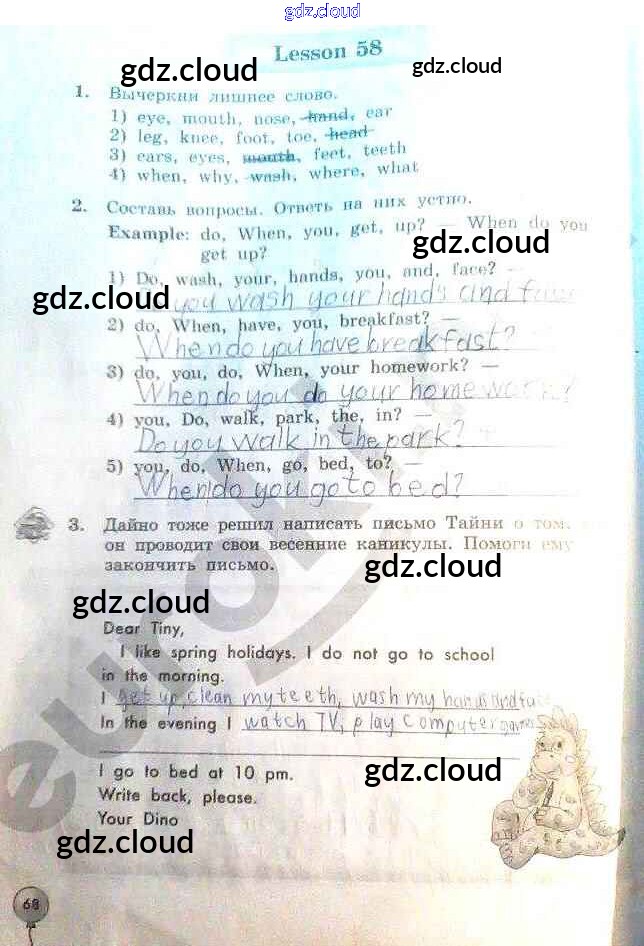 gdz.cloud
Lesson 58
gdz.cloud
gdz.cloud
1. Вычеркни лишнее слово.
1) eye, mouth, nose, hand, ear
2) leg, knee, foot, toe, head
3) ears, eyes, mouth, feet, teeth
4) when, why, wash, where, what
2. Составь вопросы. Ответь на них устно.
Example: do, When, you, get, up? — When do you
get up?
gdz.cloud
1) Do, wash, your, hands, you, and, face? —
gdz.cloud
Do you wash your hands and face
2) do, When, have, you, breakfast? —
When do you have breakfast?
3) do, you, do, When, your homework? —
When do you do your homework?
4) you, Do, walk, park, the, in? —
Do you walk in the park?
5) you, do, When, go, bed, to? —
When do you go to bed?
3. Дайно тоже решил написать письмо Тайни о том,
он проводит свои весенние каникулы. Помоги ему
закончить письмо.
gdz.cloud
gdz.cloud
Dear Tiny,
I like spring holidays. I do not go to school
in the morning.
I get up, clean my teeth, wash my hands and face
In the evening I watch TV, play computer games
I go to bed at 10 pm.
gdz.cloud
Write back, please.
Your Dino
gdz.cloud
68
euroki